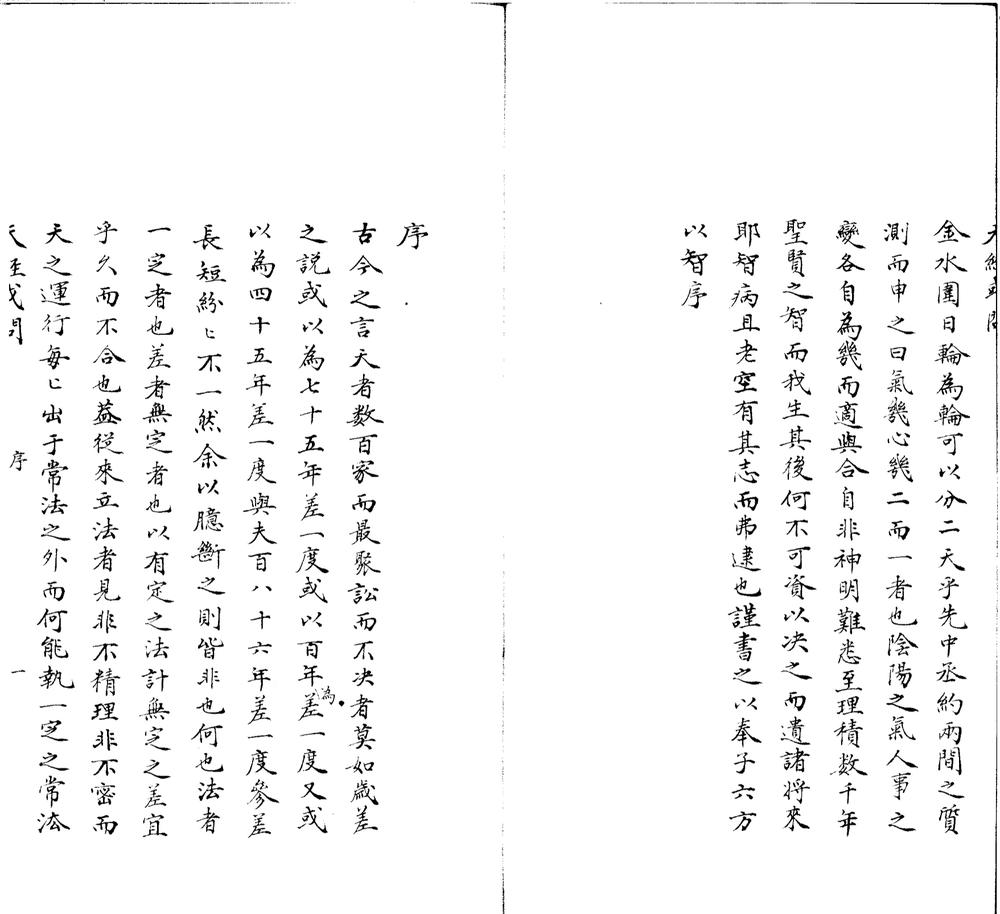 金水圍日輪為輪可以分二天乎先中丞約兩間之質
測而申之曰氣幾心幾二而一者也陰陽之氣人事之
變各自為幾而適與合自非神明難悉至理積数千年
聖賢之智而我生其後何不可資以决之而遺諸將來
耶智病且老空有其志而弗逮也謹書之以奉子六方
以智序
序
古今之言天者数百家而最聚訟而不决者莫如歲差
之説或以為七十五年差一度或以百年為差一度又或
以為四十五年差一度與夫百八十六年差一度參差
長短紛〻不一然余以臆斷之則皆非也何也法者
一定者也差者無定者也以有定之法計無定之差宜
乎久而不合也葢從來立法者見非不精理非不密而
天之運行每〻出于常法之外而何能執一定之常法
序
一